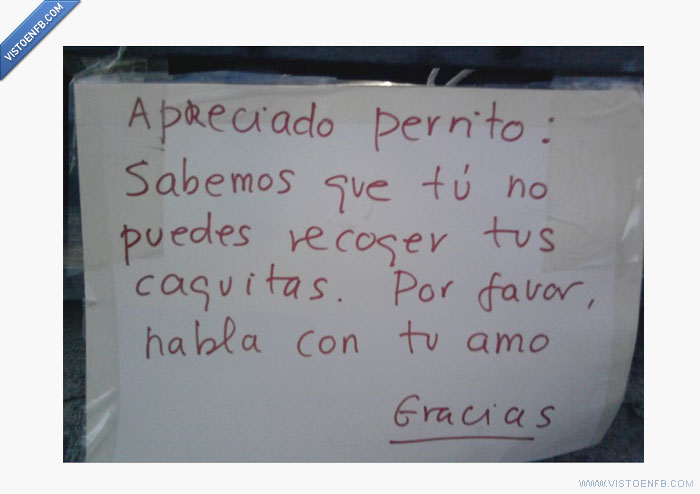 VISTOENFB.COM
Apreciado perrito:
Sabemos que tú no
puedes recoger tus
caquitas. Por favor,
habla con tu amo
Gracias
WWW.VISTOENFB.COM